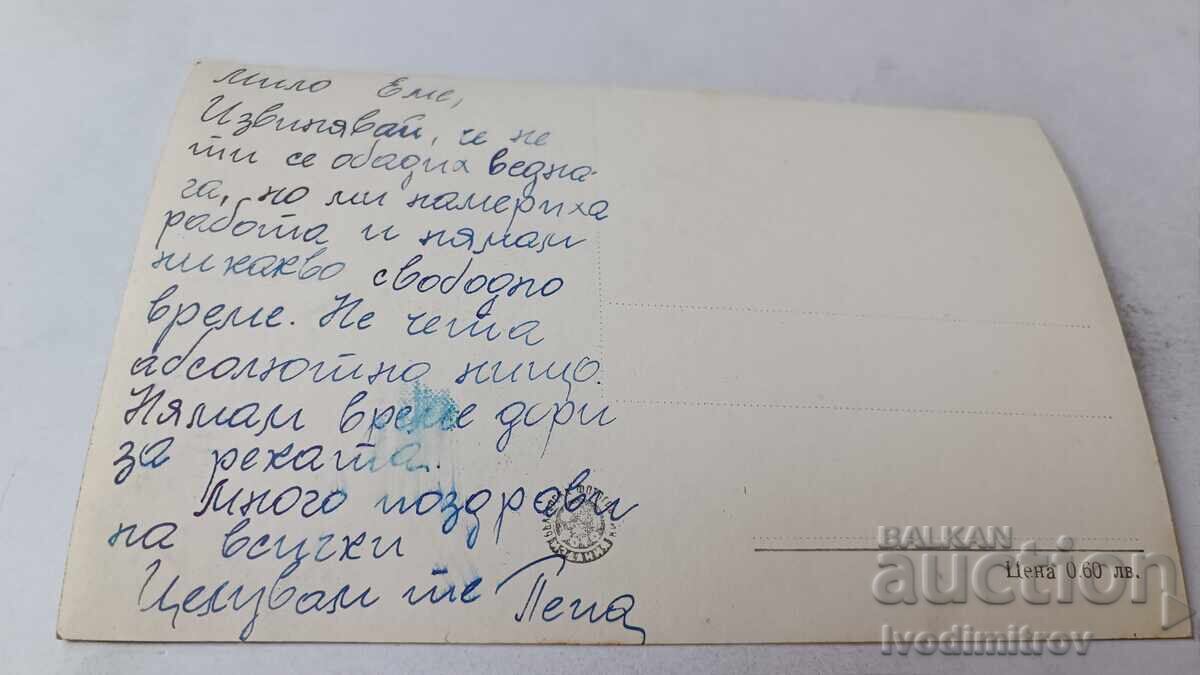 Мило Еме,
Извинявай, че не
ти се обадих ведна-
га, но ми намериха
работа и нямам
никакво свободно
време. Не чета
абсолютно нищо.
Нямам време дори
за реката.
Много поздрави
на всички
Целувам те Пепа
Цена 0.60 лв.
BALKAN
auction
Ivodimitrov